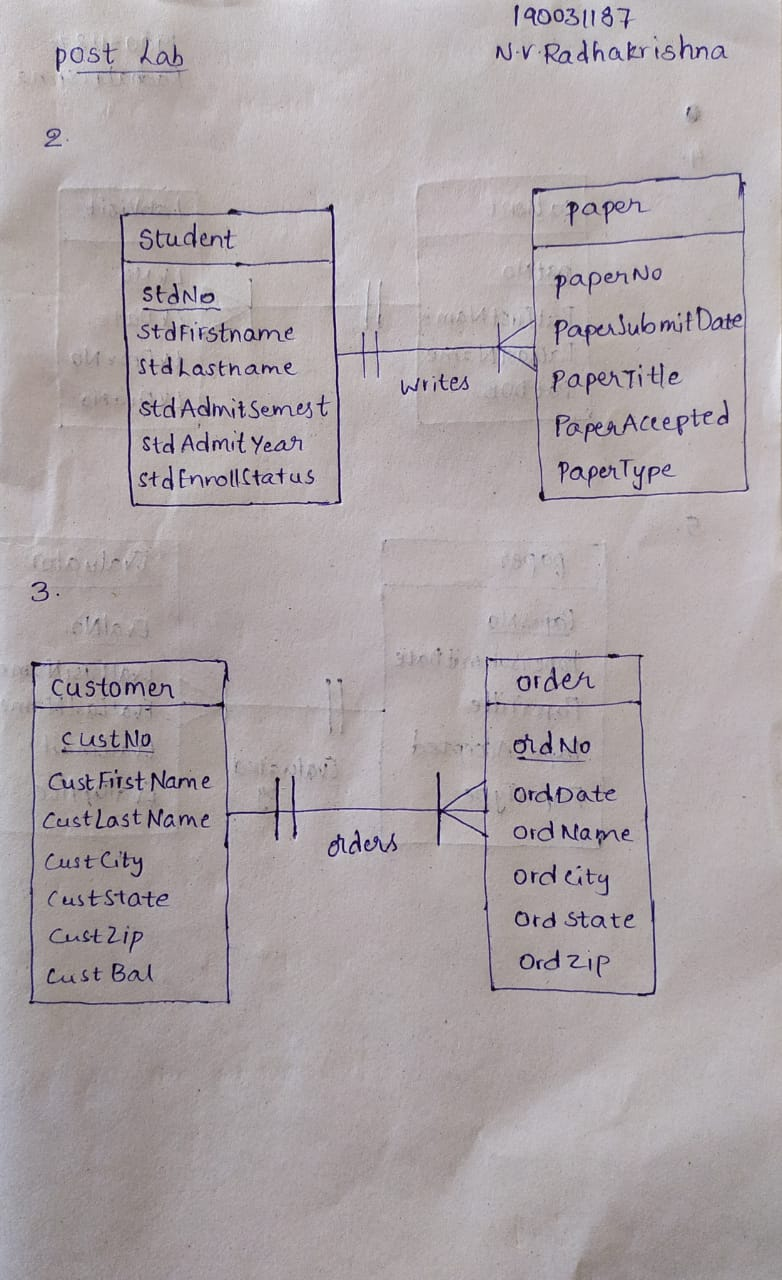 190031187
post Lab
N.V.Radhakrishna
2.
Student
stdNo
stdFirstname
stdLastname
stdAdmitSemest
stdAdmitYear
stdEnrollStatus
writes
paper
paperNo
PaperSubmitDate
PaperTitle
PaperAccepted
PaperType
3.
Customer
CustNo
CustFirstName
CustLastName
CustCity
CustState
CustZip
CustBal
orders
order
ordNo
OrdDate
OrdName
OrdCity
OrdState
OrdZip